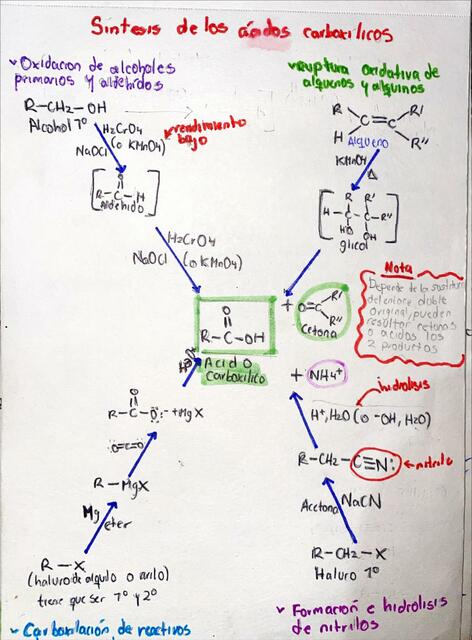 Síntesis de los ácidos carboxílicos
Oxidacion de alcoholes
primarios y aldehídos
R-CH2-OH
Alcohol 1º
H2CrO4
(o KMnO4)
NaOCl
rendimiento
bajo
O
R-C-H
Aldehído
H2CrO4
NaOCl (o KMnO4)
Ruptura Oxidativa de
alquenos y alquinos
R R'
C=C
H R''
Alqueno
KMnO4
Δ
R R'
H-C-C-R''
HO OH
glicol
O
R-C-OH
Acido
Carboxílico
+
O=C R' R''
Cetona
Nota
del enlace doble
Original, pueden
resultar cetonas
o ácidos los
2 productos
+ NH4+
hidrolisis
H+, H2O (o -OH, H2O)
R-CH2-C≡N:
nitrilo
Acetona
NaCN
R-CH2-X
Haluro 1º
Formación e hidrolisis
de nitrilos
H3O+
O
R-C-O:- +MgX
O=C=O
R-MgX
Mg
eter
R-X
(haluro de alquilo o arilo)
tiene que ser 1º y 2º
Carboxilación de reactivos